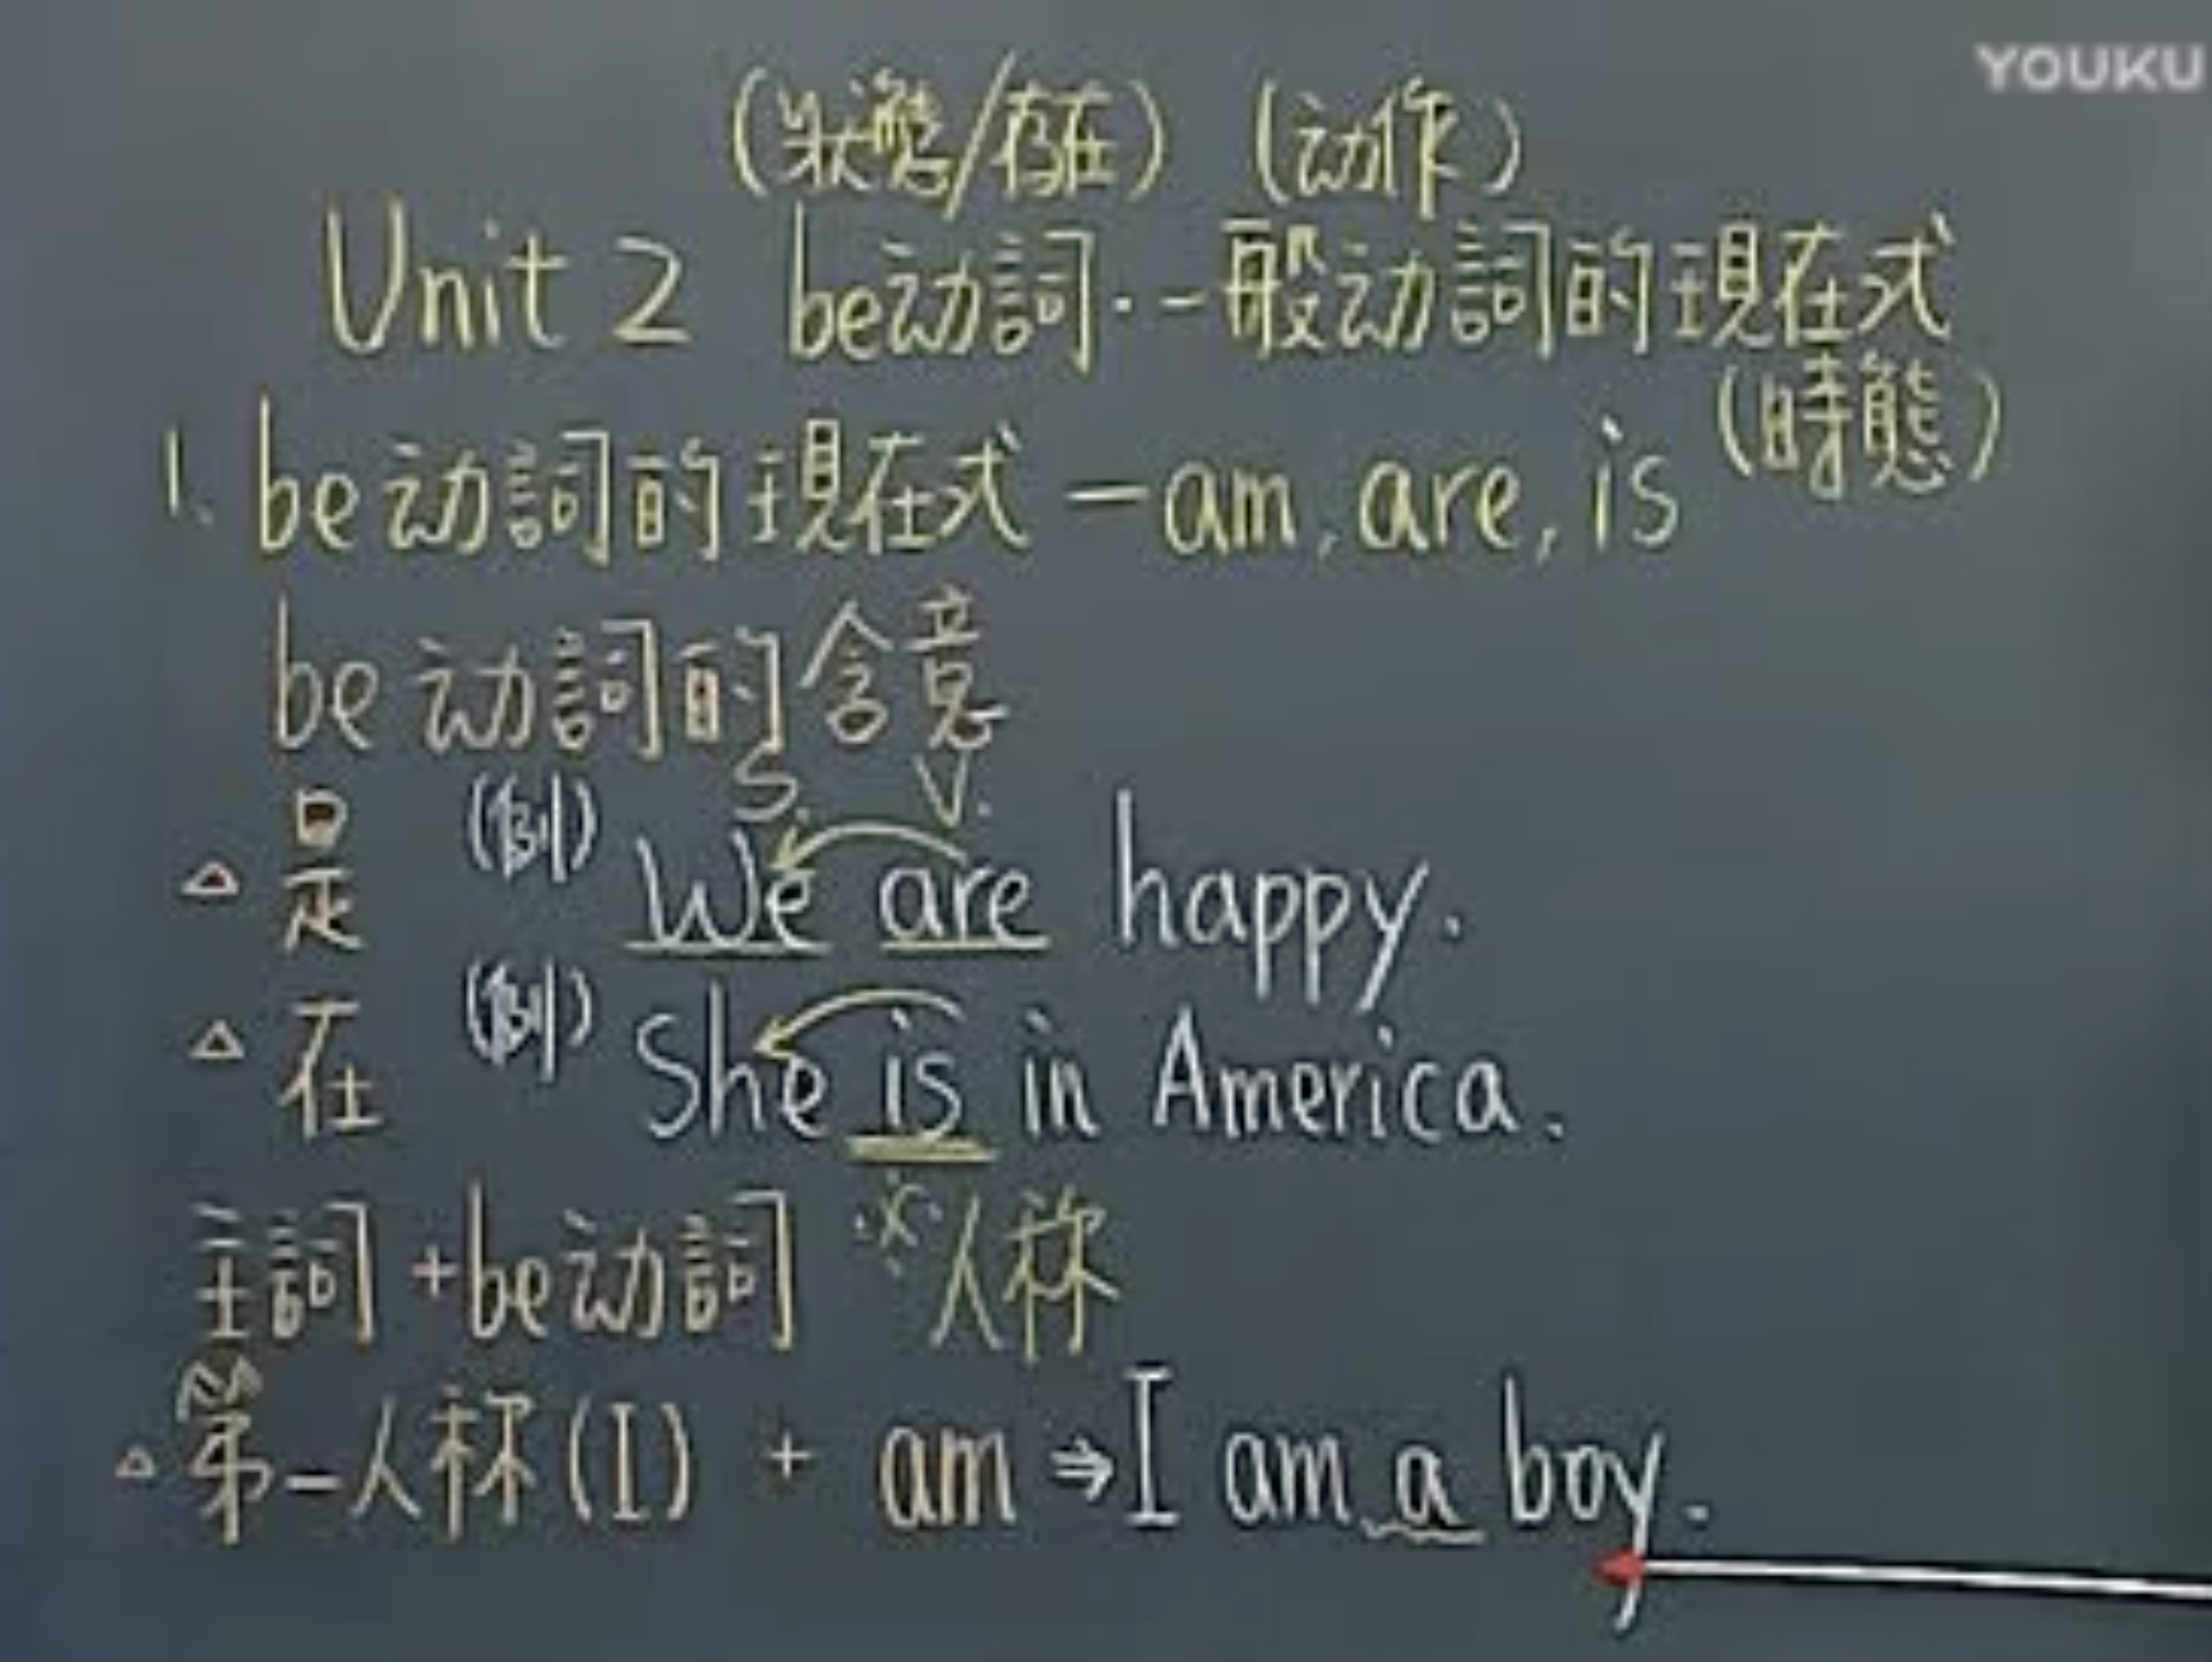 YOUKU
(狀態/存在) (动作)
Unit 2 be动詞·一般动詞的現在式
(時態)
1. be动詞的現在式 — am, are, is
be动詞的含意
S. V.
△ 是 (例) We are happy.
△ 在 (例) She is in America.
主詞 + be动詞 ※人称
△ 第一人称(I) + am ⇒ I am a boy.